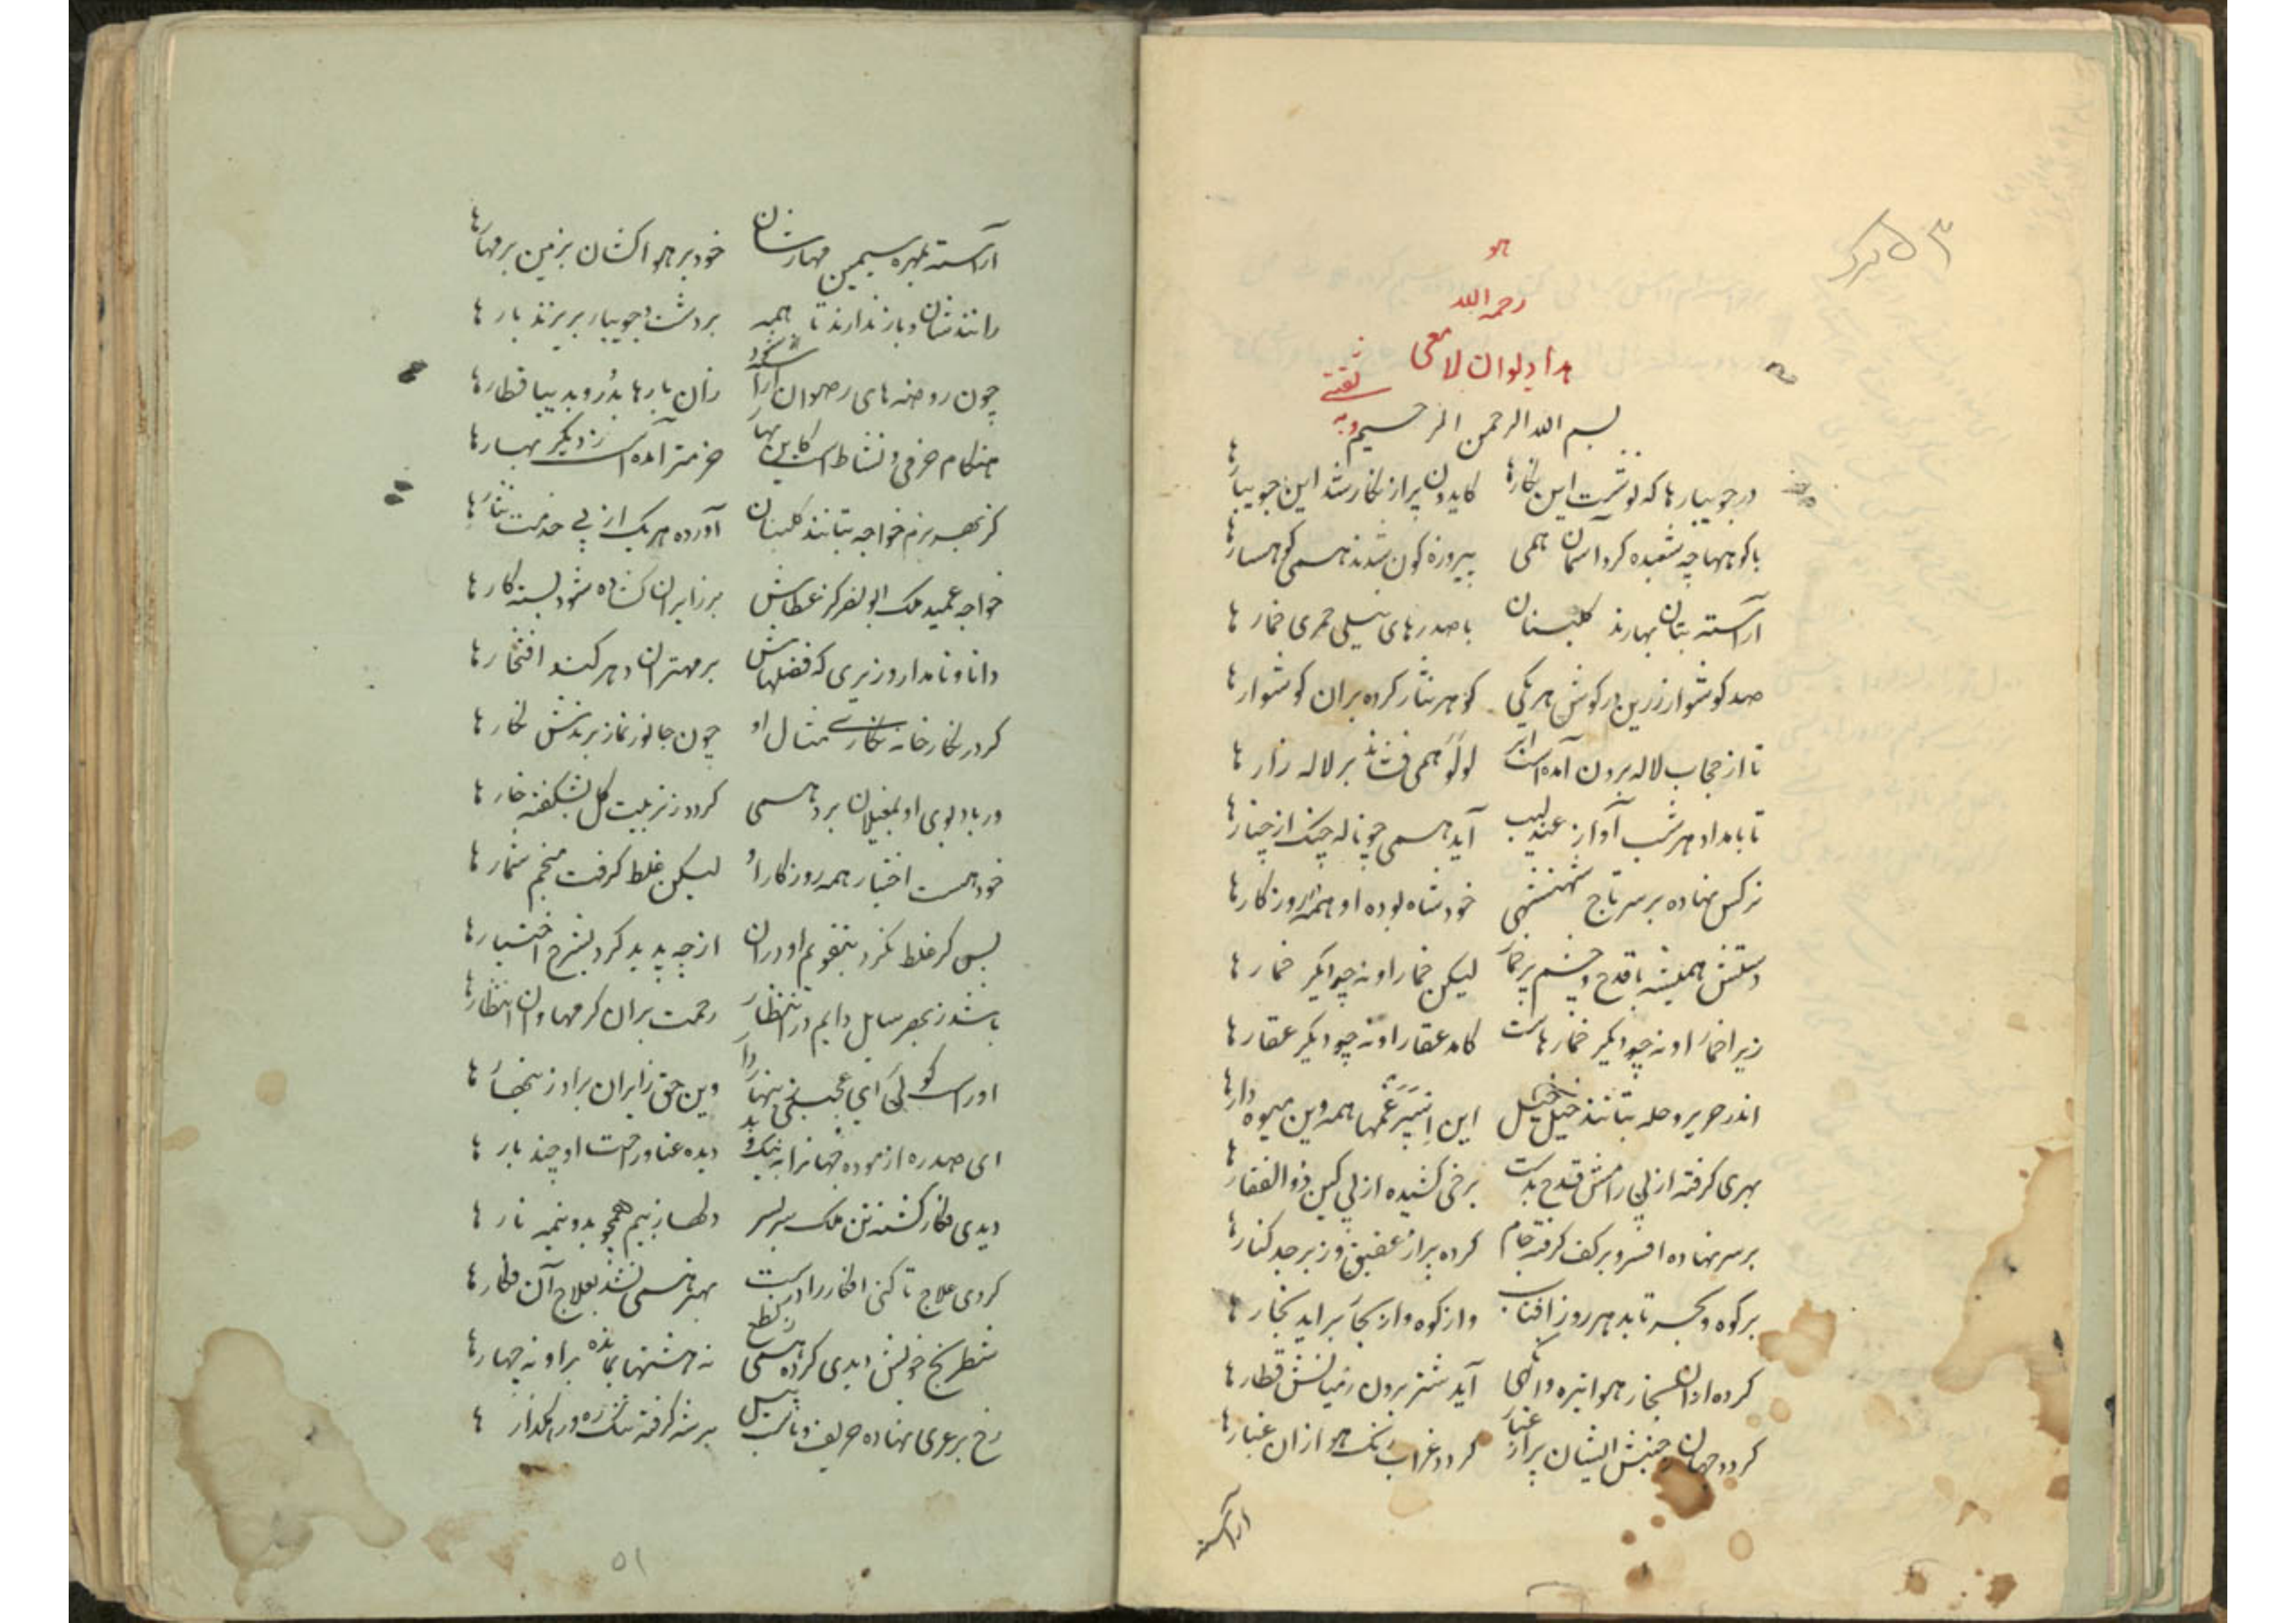 هو
رحمه الله
هذا دیوان لامعی
ثقتی
وبه
بسم الله الرحمن الرحیم
در جویبارها که نوشت این نگارها کایدون پر از نگار شد این جویبارها
با کوهها چه شعبده کرد آسمان همی پیروزه کون شدند همی کوهسارها
آراسته بتان بهارند کلبنان با صدرهای نیلی خمری خمارها
صد کوشوار زرین در کوش هر یکی کوهر نثار کرده بران کوشوارها
تا از حجاب لاله برون آمده است ابر لولو همی فشاند بر لاله زارها
تا بامداد هر شب آواز عندلیب آید همی چو ناله چنک از چنارها
نرکس نهاده بر سر تاج شهنشهی خود شاه بوده او همه روزکارها
دستش همیشه با قدح و چشم پر خمار لیکن خمار او نه چو دیکر خمارها
زیرا خمار او نه چو دیکر خمارهاست کامد عقار او نه چو دیکر عقارها
اندر حریر و حله بتانند خیل خیل این اسپرغمها همه وین میوه دارها
بهری کرفته از پی رامش قدح بدست برخی کشیده از پی کین ذوالفقارها
بر سر نهاده افسر و بر کف کرفته جام کرده پر از عقیق و زبرجد کنارها
بر کوه و بحر تابد هر روز آفتاب وز کوه وز بحار براید بخارها
کرده ازان بخار هوا تیره وانکهی آید شتر برون ز میانش قطارها
کردد جهان ز جنبش ایشان پر از غبار کردد غراب رنک هوا زان غبارها
آراسته
آراسته بمهره سیمین مهارشان خود بر هوا کشان بزمین بر مهارها
رانندشان و باز ندارند تا همه بر دشت و جویبار بریزند بارها
چون روضه های رضوان آراسته شود زان بارها بدر و بدیبا قطارها
هنکام خرمی و نشاط است کاین بهار خرمتر آمده است ز دیکر بهارها
کز بهر بزم خواجه بتانند کلبنان آورده هر یک از پی خدمت نثارها
خواجه عمید ملک ابو نصر کز عطاش بر زایران کشاده شود بسته کارها
دانا و نامدار وزیری که فضلهاش بر مهتران دهر کند افتخارها
کر در نکارخانه نکاری مثال او چون جانور نماز برندش نکارها
ور باد بوی او بمغیلان برد همی کردد ز تربیت کل بشکفته خارها
خود هست اختیار همه روزکار او لیکن غلط کرفت منجم شمارها
بس کر غلط نکرد بتقویم او دران از چه پدید کرد بشرح اختیارها
باشد ز بهر سایل دایم در انتظار رحمت بران کرمها وان انتظارها
دیده عنا و رحمت او چند بارها
دیدی فکار کشته تن ملک سر بسر دلها ز بیم همچو بدو نیمه نارها
کردی علاج تا کنی افکار را درست بهتر همی نشد بعلاج آن فکارها
شطرنج خویش دیدی کرده همی ز نطع نه هشتها بمانده بر او نه چهارها
رخ بر عری نهاده حریف و باسب پیل
۵۱